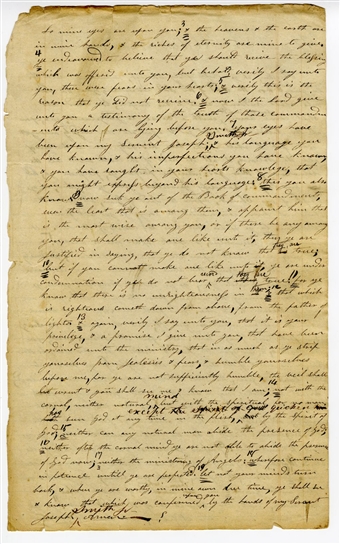 so mine eyes are upon you; & the heavens & the earth are
in mine hands, & the riches of eternity are mine to give.
4 ye endeavored to believe that ye should receive the blessing
which was offered unto you, but behold verily I say unto
you, there were fears in your hearts; & verily this is the
reason that ye did not receive. & now I the Lord give
unto you a testimony of the truth of those commandmen
-ts which are lying before you, your eyes have
been upon my Servent Joseph, & his language you
have known, & his imperfections you have known
& you have sought in your hearts knowlege, that
you might express beyond his language, this you also
know now seek ye out of the Book of commandments,
even the least that is among them, & appoint him that
is the most wise among you, or if there be any among
you, that shall make one like unto it, then ye are
justified in saying, that ye do not know that they are true;
10 but if you cannot make one like unto it, ye are under
condemnation if ye do not bear that they are true; 11 for ye
know that there is no unrighteousness in them; & that which
is righteous cometh down from above, from the father of
lights 13 & again, verily I say unto you, that it is your
privelige, & a promise I give unto you, that have been
ordained unto the ministry, that in as much as ye strip
yourselves from Jealesies & fears, & humble yourselves
before me, for ye are not sufficiently humble, the veil shall
be rent & you shall see me & know that I am; 14 not with the
carnal, neither natural mind, but with the spiritual, for no man
has seen God at any time in the flesh, but by the Spirit of
God, 15 neither can any natural man abide the presence of God,
16 neither after the carnal mind ye are not able to abide the presence
of God now; 17 neither the ministering of Angels; 18 wherefore continue
in patience untill ye are perfected, 19 let not your minds turn
back, & when ye are worthy, in mine own due time, ye shall see
& know that which was confirmed upon you by the hands of my Servent
Joseph Smith Jr Amen